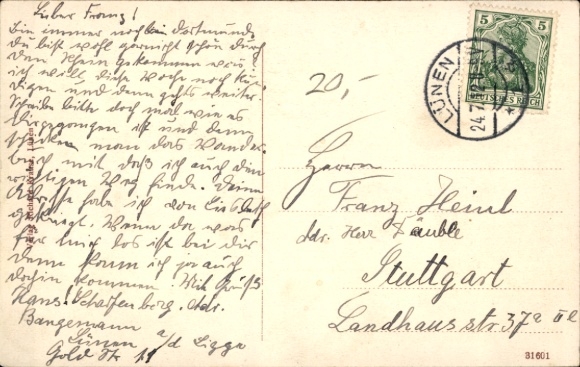 Lieber Franz!
Bin immer noch bei Dortmund,
du bist wohl garnicht schön durch
den Rhein gekommen was?
ich will diese Woche noch kün-
digen und dann gehts weiter.
Schreibe bitte doch mal wie es
ist und dann
man das Wander-
buch mit daß ich auch den
richtigen Weg finde. Deine
Adresse habe ich von
gekriegt. Wenn da was
für mich los ist bei dir
dann kann ich ja auch
dahin kommen. Mit Gruß
Hans Scharfenberg. Adr.
Bangemann
Lünen a/d Lippe
Gold Str 11
20,-
5 5
DEUTSCHES REICH
LÜNEN
24.7.12
Herrn
Franz Heinl
adr. Herr Täuble
Stuttgart
Landhausstr. 37a
31601